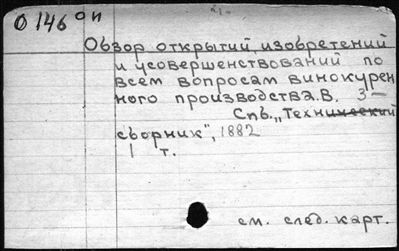 О 146 он
Обзор открытий, изобретений
и усовершенствований по
всем вопросам винокурен
ного производства. В. 3 —
Спб. „Технический
сборник", 1882
1 т.
см. след. карт.